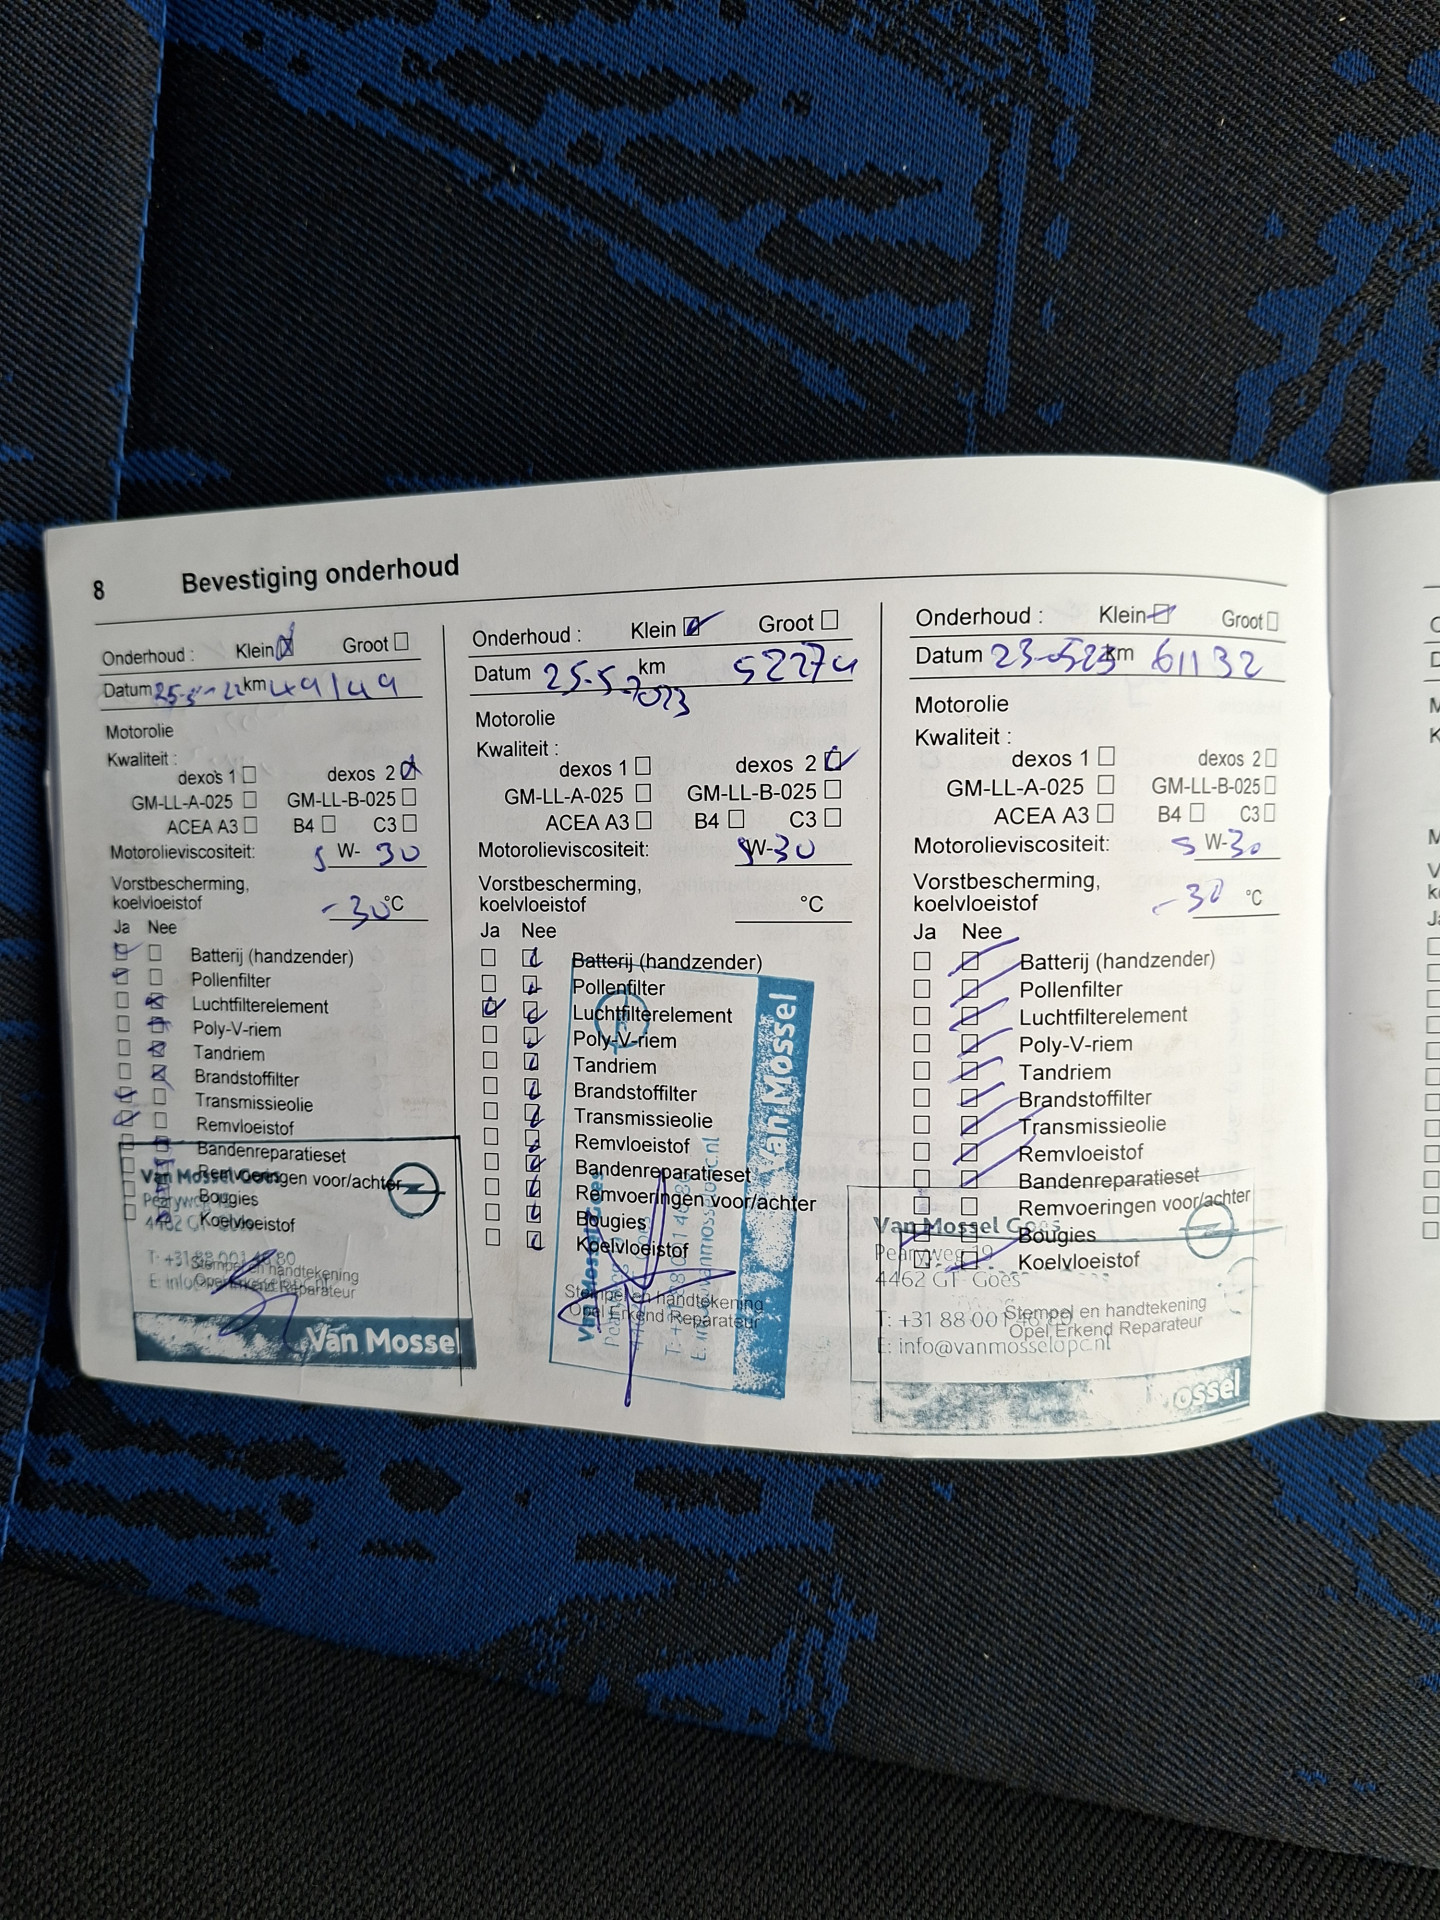 8 Bevestiging onderhoud
Onderhoud : Klein Groot
Datum km 49149
Motorolie
Kwaliteit :
dexos 1 dexos 2
GM-LL-A-025 GM-LL-B-025
ACEA A3 B4 C3
Motorolieviscositeit: 5 W- 30
Vorstbescherming,
koelvloeistof -30 °C
Ja Nee
Batterij (handzender)
Pollenfilter
Luchtfilterelement
Poly-V-riem
Tandriem
Brandstoffilter
Transmissieolie
Remvloeistof
Bandenreparatieset
Remvoeringen voor/achter
Bougies
Koelvloeistof
Stempel en handtekening
Opel Erkend Reparateur
Van Mossel Goes
4462 GT Goes
T: +31 88 001 48 80
Van Mossel
Onderhoud : Klein Groot
Datum 25-5-2023 km 52274
Motorolie
Kwaliteit :
dexos 1 dexos 2
GM-LL-A-025 GM-LL-B-025
ACEA A3 B4 C3
Motorolieviscositeit: 5 W-30
Vorstbescherming,
koelvloeistof °C
Ja Nee
Batterij (handzender)
Pollenfilter
Luchtfilterelement
Poly-V-riem
Tandriem
Brandstoffilter
Transmissieolie
Remvloeistof
Bandenreparatieset
Remvoeringen voor/achter
Bougies
Koelvloeistof
Stempel en handtekening
Opel Erkend Reparateur
Van Mossel Goes
Van Mossel
Onderhoud : Klein Groot
Datum km 61132
Motorolie
Kwaliteit :
dexos 1 dexos 2
GM-LL-A-025 GM-LL-B-025
ACEA A3 B4 C3
Motorolieviscositeit: 5 W-30
Vorstbescherming,
koelvloeistof -30 °C
Ja Nee
Batterij (handzender)
Pollenfilter
Luchtfilterelement
Poly-V-riem
Tandriem
Brandstoffilter
Transmissieolie
Remvloeistof
Bandenreparatieset
Remvoeringen voor/achter
Bougies
Koelvloeistof
Stempel en handtekening
Opel Erkend Reparateur
Van Mossel Goes
Pearyweg 19
4462 GT Goes
T: +31 88 001
E: info@vanmosselopc.nl
ossel